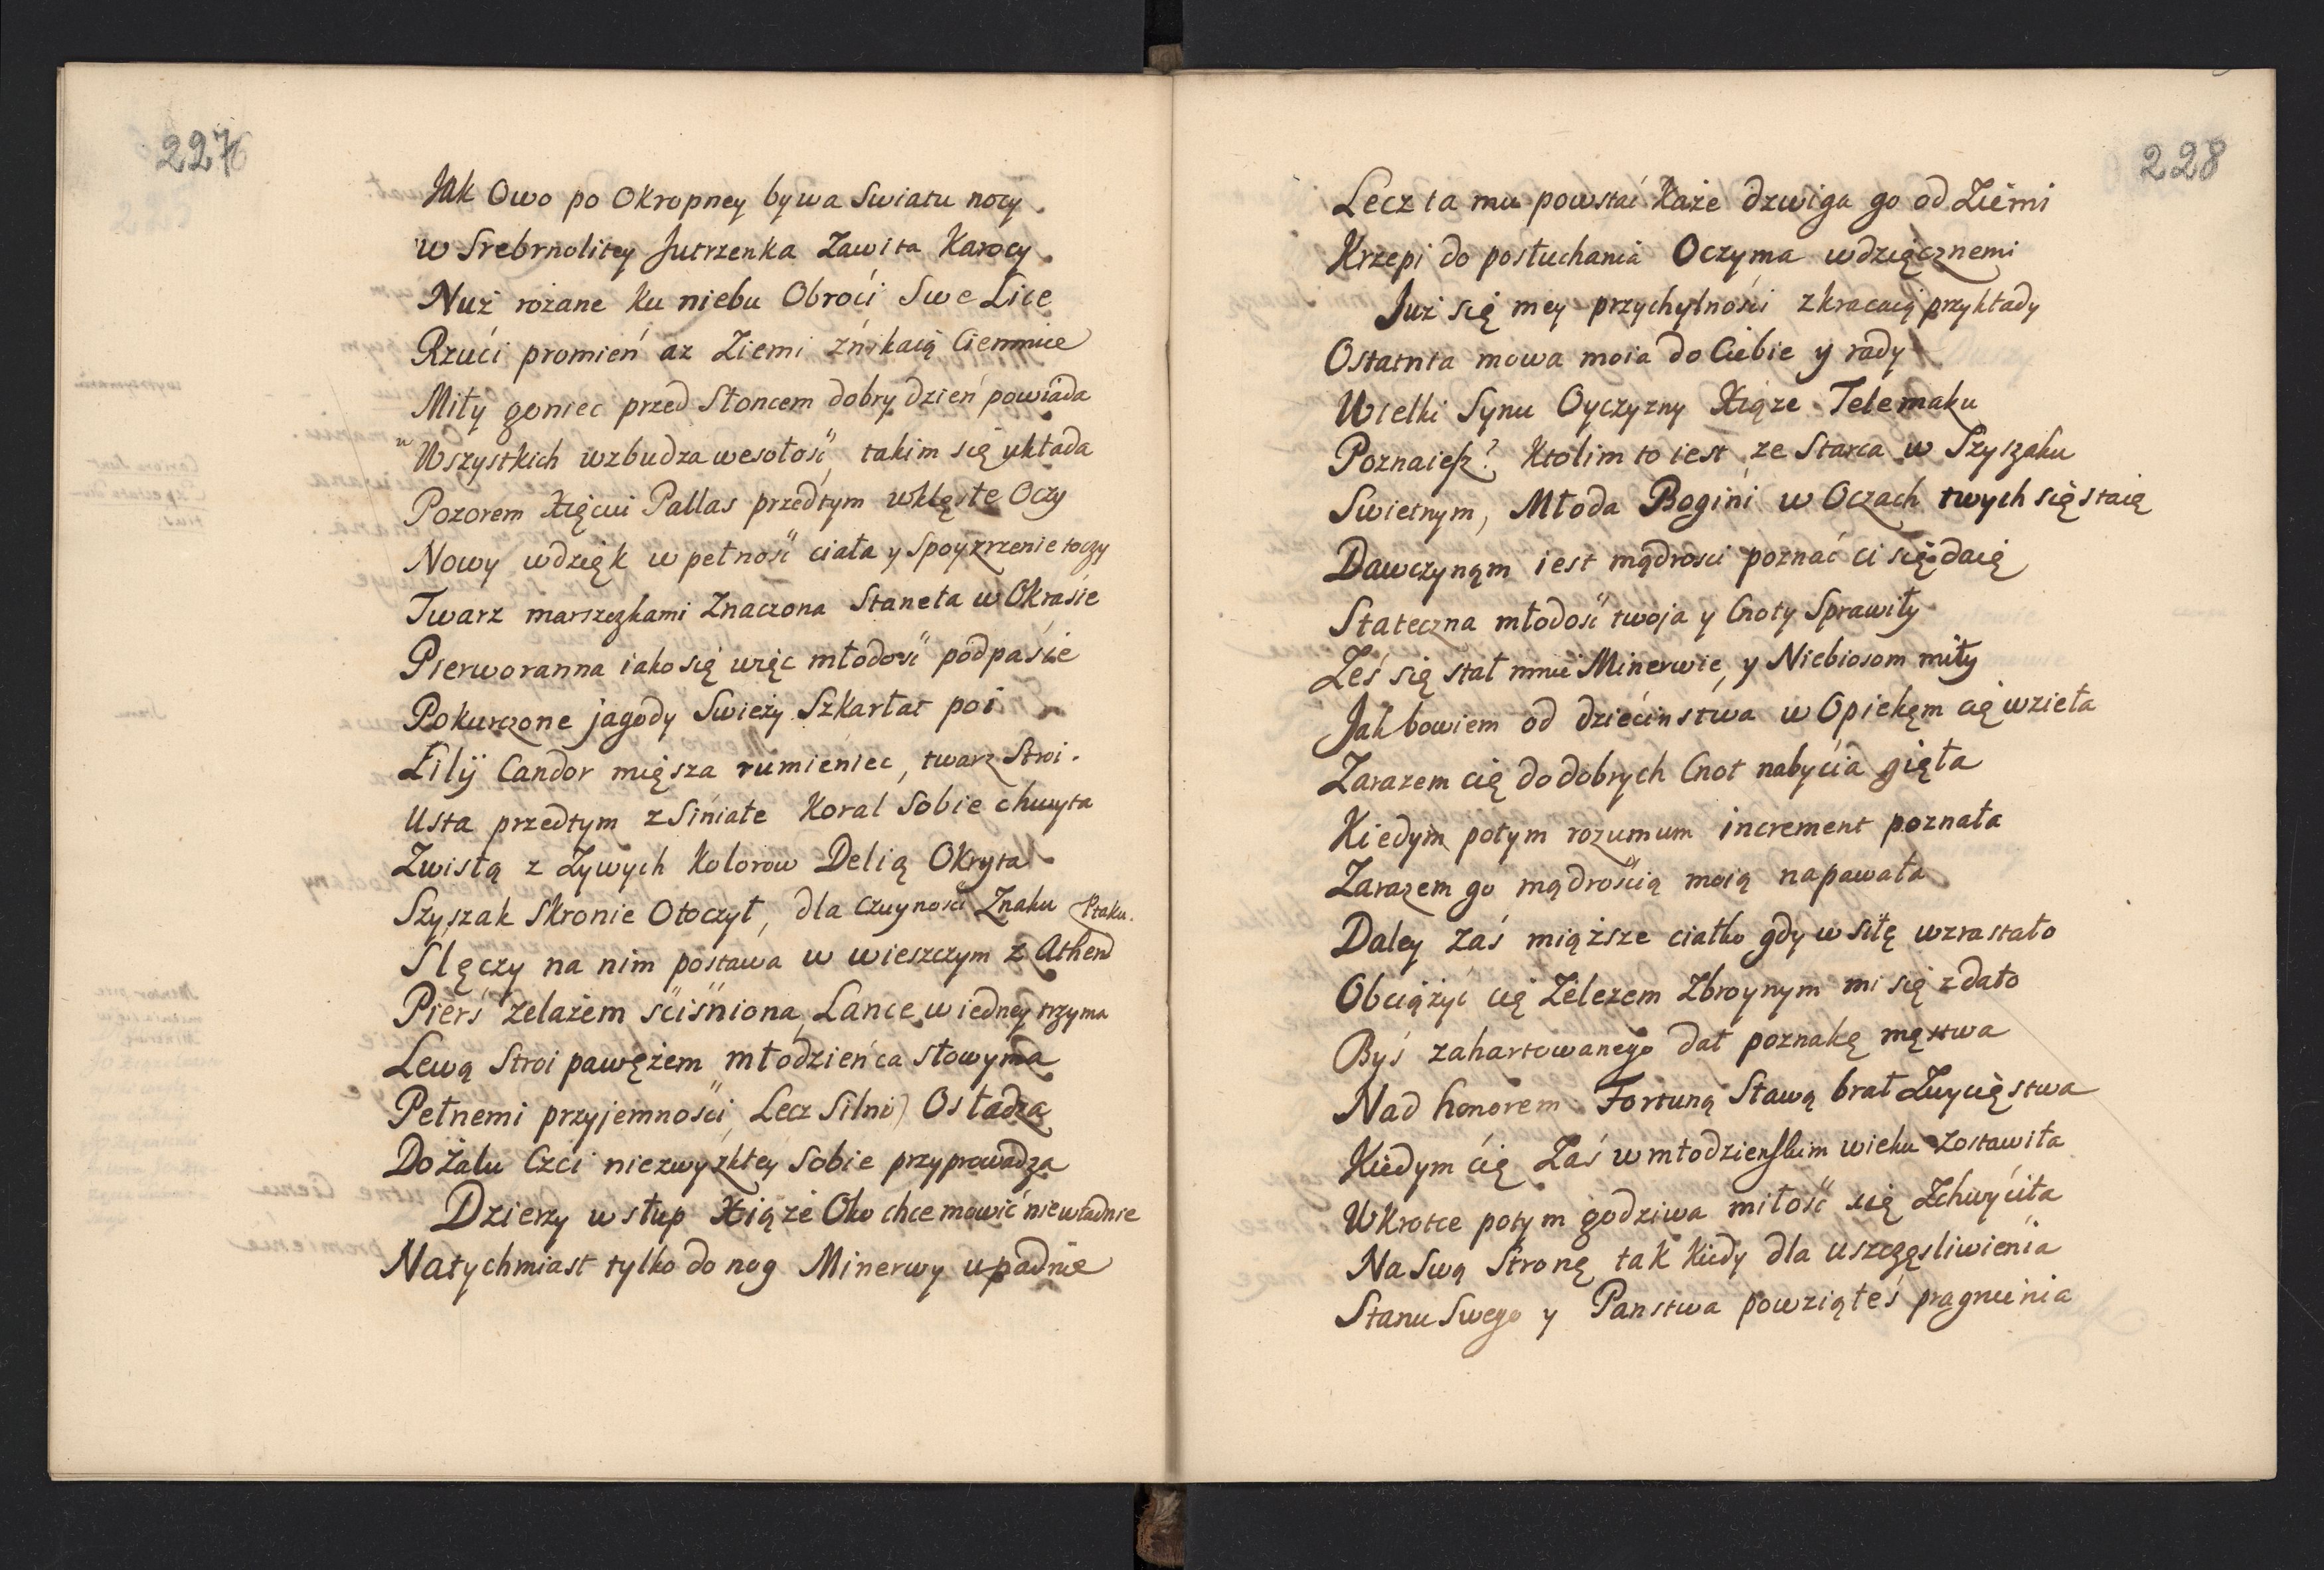 227
Jak Owo po Okropney bywa Swiatu nocy.
w Srebrnolitey Jutrzenka Zawita Karocy.
Nuż rożane Ku niebu Obroći Swe Lice
Rzući promień az Ziemi źnikaią Ciemnice
Miły goniec przed Słoncem dobry dzień powiada
u Wszystkich wzbudza wesołość, takim się układa
Pozorem Xięciu Pallas przedtym wklęsłe Oczy
Nowy wdzięk w pełność ciała y Spoyzrzenie toczy
Twarz marszczkami Znaczona Staneła w Okraśie
Pierworanna iako się więc młodość podpaśie
Pokurczone jagody Swieży Szkarłat poi
Lilij Candor mięsza rumieniec, twarz Stroi.
Usta przedtym zSiniałe Koral Sobie chwyta
Zwisłą z Zywych Kolorow Delią Okryta
Szyszak Skronie Otoczył, dla Czuyności Znaku Ptaku.
Slęczy na nim postawa w wieszczym z Athen
Pierś żelażem sciśniona, Lance w iedney trzyma
Lewą Stroi pawężem młodzieńca słowyma
Pełnemi przyjemności, Lecz Silno) Osładza
Do Żalu Czci niezwyżkłey Sobie przyprowadza
Dzierzy wstup Xiąże Oko chce mowić niewładnie
Natychmiast tylko do nog Minerwy upadnie
228
Lecz ta mu powstać Każe dzwiga go od Ziemi
Krzepi do posłuchania Oczyma wdzięcznemi
Już się mey przychylności zkracaią przykłady
Ostatnia mowa moia do Ciebie y rady
Wielki Synu Oyczyzny Xiąze Telemaku
Poznaiesz? Ktolim to iest, ze Starca w Szyszaku
Swietnym, Młoda Bogini w Oczach twych się staię
Dawczynąm iest mądrosci poznać ci się daię
Stateczna młodość twoja y Cnoty Sprawiły
Żeś się stał mnie Minerwie, y Niebiosom miły
Jak bowiem od dziećinstwa w Opiekęm cię wzieła
Zarazem cię do dobrych Cnot nabycia gięła
Kiedym potym rozumum increment poznała
Zarazem go mądrością moią napawała
Daley zaś miąższe ciałko gdy w siłę wzrastało
Obciążyć cię Żelezem Zbroynym mi się zdało
Byś zahartowanego dał poznakę męstwa
Nad honorem Fortuną Sławą brał Zwycięstwa
Kiedym cię Zaś w młodzienskim wieku zostawiła
Wkrotce potym godziwa miłość cię Zchwyćiła
Na Swą Stronę tak Kiedy dla uszczęsliwienia
Stanu Swego y Panstwa powziąłeś pragnienia